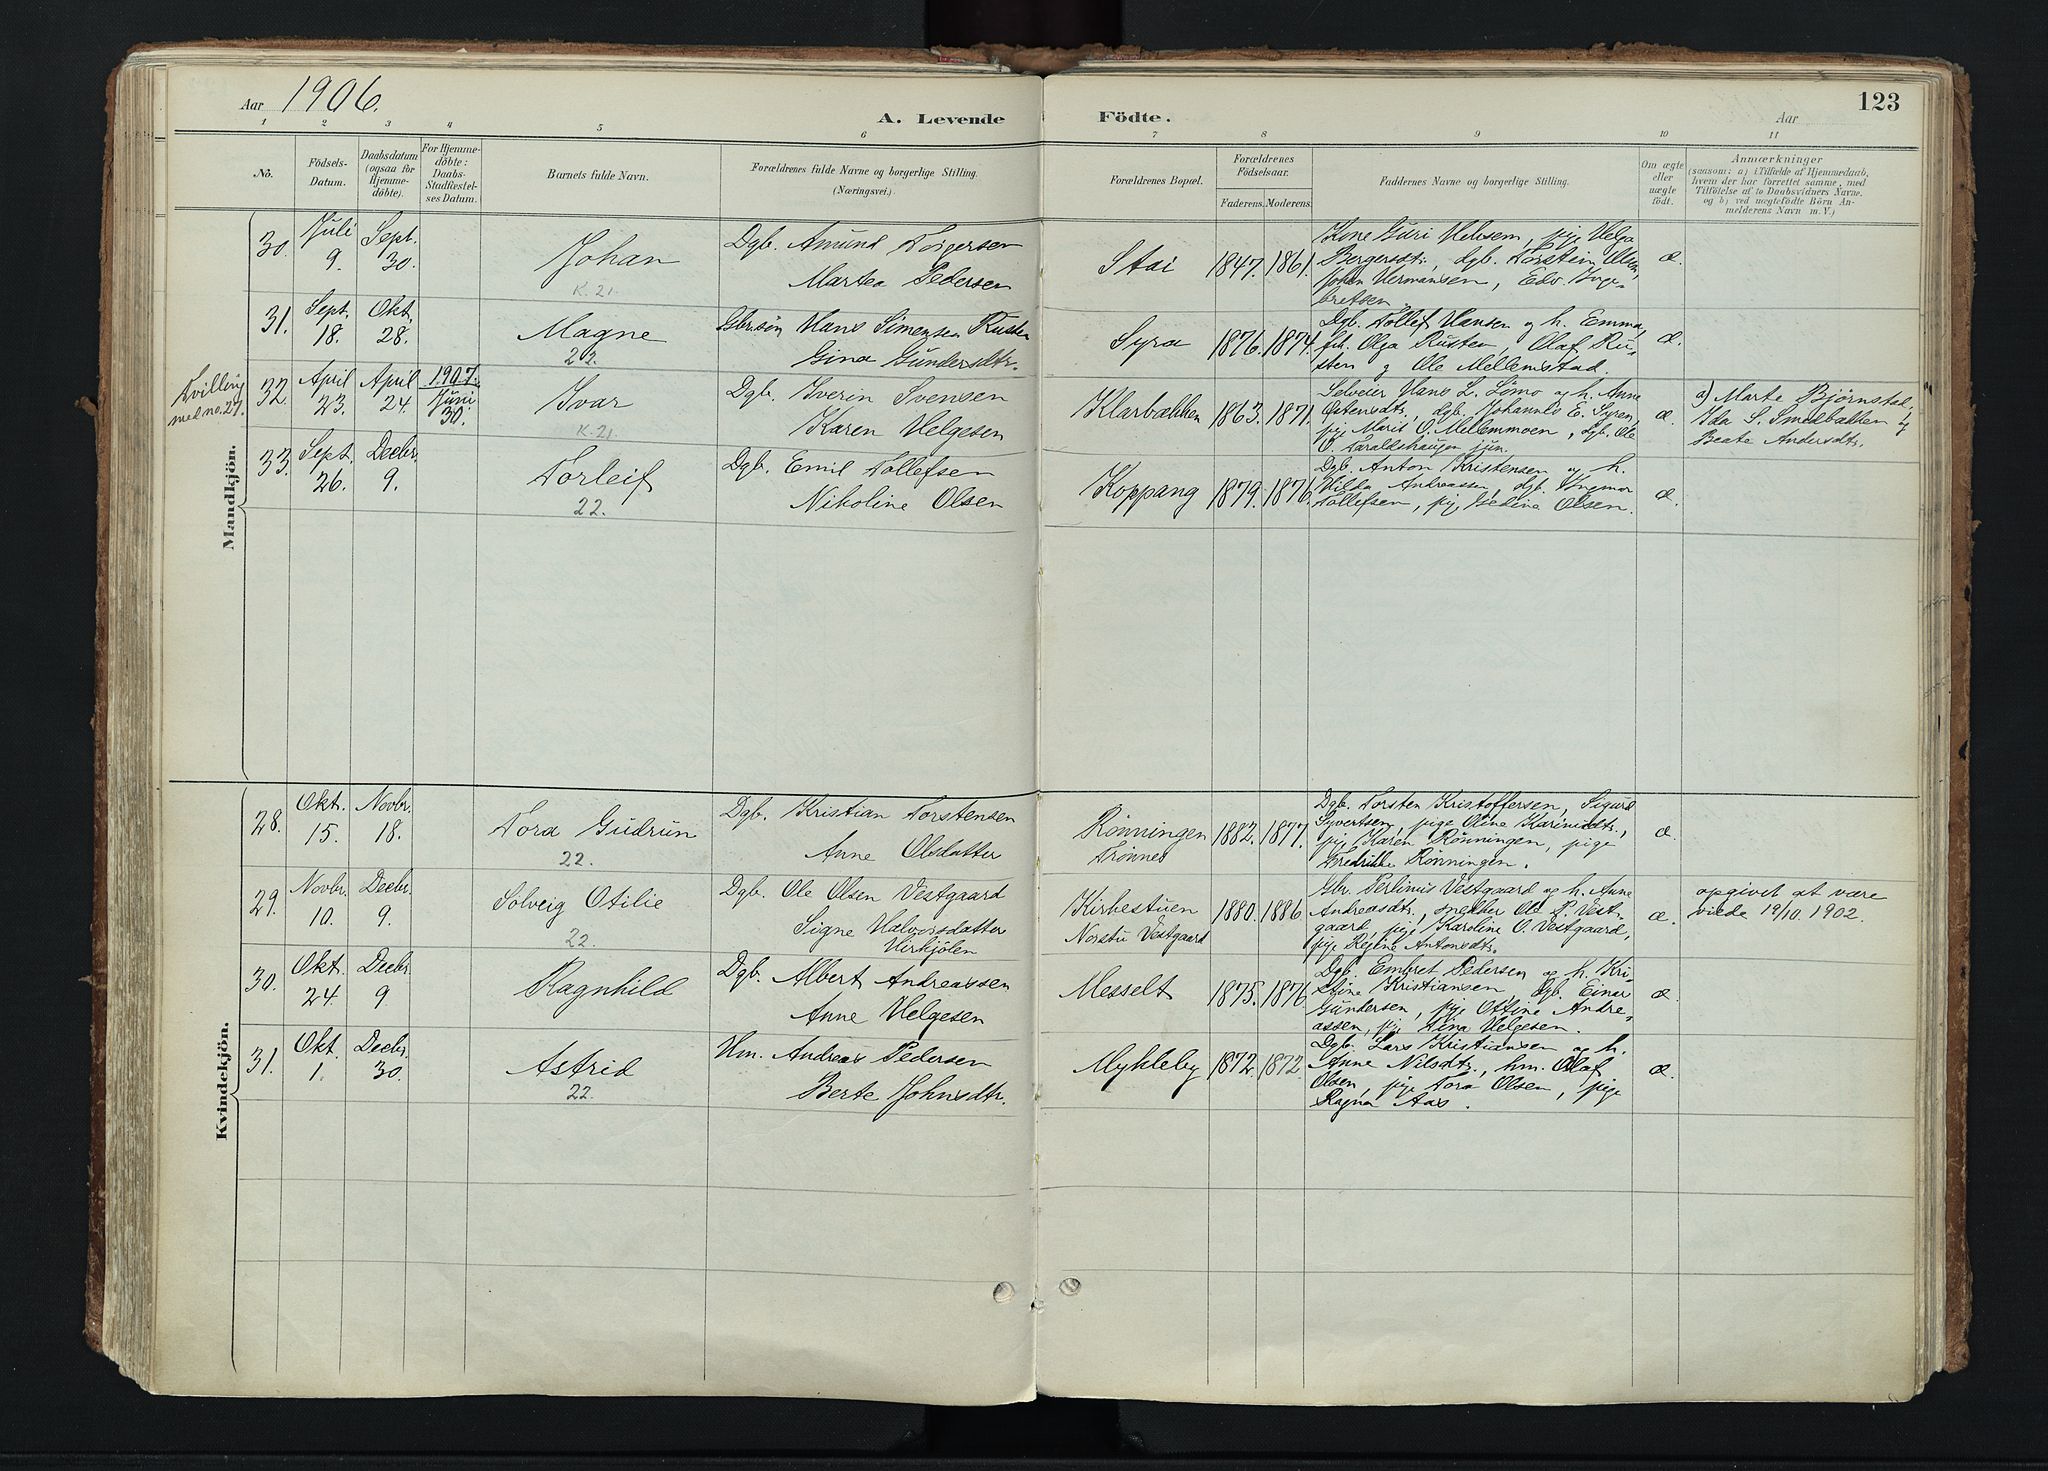 Aar 1906.
A. Levende Födte.
123
Aar
1 2 3 4 5 6 7 8 9 10 11
No.
Födsels-Datum.
Daabsdatum (ogsaa for Hjemme-döbte).
For Hjemme-döbte: Daabs-Stadfæstel-ses Datum.
Barnets fulde Navn.
Forældrenes fulde Navne og borgerlige Stilling.
(Næringsvei.)
Forældrenes Bopæl.
Forældrenes Födselsaar.
Faderens. Moderens.
Faddernes Navne og borgerlige Stilling.
Om ægte eller uægte födt.
Anmærkninger
(saasom: a) i Tilfælde af Hjemmedaab,
hvem der har forrettet samme, med
Tilföielse af to Daabsvidners Navne.
og b) ved uægtefödte Börn An-
melderens Navn m. V.)
Mandkjön.
30. Juli 9. Sept. 30. Johan K. 21.
Dgb. Amund Torgersen
Martea Pedersen
Stai 1847. 1861.
Kone Guri Helisem, pige Helga
Bergersdtr., dgb. Torstein Olsen,
Johan Hermansen, Edv. Inge-
bretsen.
æ.
31. Sept. 18. Okt. 28. Magne 22.
Gbr.søn Hans Simensen Rusten
Gina Gundersdtr.
Syra 1876. 1874.
Dgb. Tollef Hansen og h. Emma,
frk. Olga Rusten, Olaf Ru-
sten og Ole Mellemstad.
æ.
Tvilling med no. 27.
32. April 23. April 24. 1907. Juni 30. Ivar K. 21.
Dgb. Iverin Svensen
Karen Helgesen
Klarbækken 1863. 1871.
Selveier Hans L. Lømo og h. Anne
Østensdtr., dgb. Johannes E. Syren,
pige Marit O. Mellemmoen, dgb. Ole
O. Taraldshaugen jun.
æ.
a) Marte Bjørnstad,
Ida S. Smedbækken og
Beate Andersdtr.
33. Sept. 26. Decbr. 9. Torleif 22.
Dgb. Emil Tollefsen
Nikoline Olsen
Koppang 1879. 1876.
Dgb. Anton Kristensen og h.
Hilda Andreassen, dgb. Ingmar
Tollefsen, pige Gedine Olsen.
æ.
Kvindekjön.
28. Okt. 15. Novbr. 18. Tora Gudrun 22.
Dgb. Kristian Torstensen
Anne Olsdatter
Rønningen Trønnes 1882. 1877.
Dgb. Torsten Kristoffersen, Sigurd
Syvertsen, pige Oline Karinusdtr.,
pige Karen Rønningen, pige
Fredrikke Rønningen.
æ.
29. Novbr. 10. Decbr. 9. Solveig Otilie 22.
Dgb. Ole Olsen Vestgaard
Signe Halvorsdatter
Hirkjølen
Kirkestuen
Norstu Vestgaard 1880. 1886
Gbr. Perlinus Vestgaard og h. Anne
Andreasdtr., snekker Ole P. Vest-
gaard, pige Karoline O. Vestgaard,
pige Regine Antonsdtr.
æ.
opgivet at være
viede 19/10. 1902.
30. Okt. 24. Decbr. 9 Ragnhild
Dgb. Albert Andreassen
Anne Helgesen
Messelt 1875. 1876.
Dgb. Embret Pedersen og h. Kri-
stine Kristiansen dgb. Einar
Gundersen, pige Ottine Andre-
assen, pige Lina Helgesen.
æ.
31. Okt. 1. Decbr. 30. Astrid 22.
Hm. Andreas Pedersen
Berte Johnsdtr.
Mykleby 1872. 1872
Dgb. Lars Kristiansen og h.
Anne Nilsdtr., hm. Olaf
Olsen, pige Tora Olsen, pige
Ragna Aas.
æ.